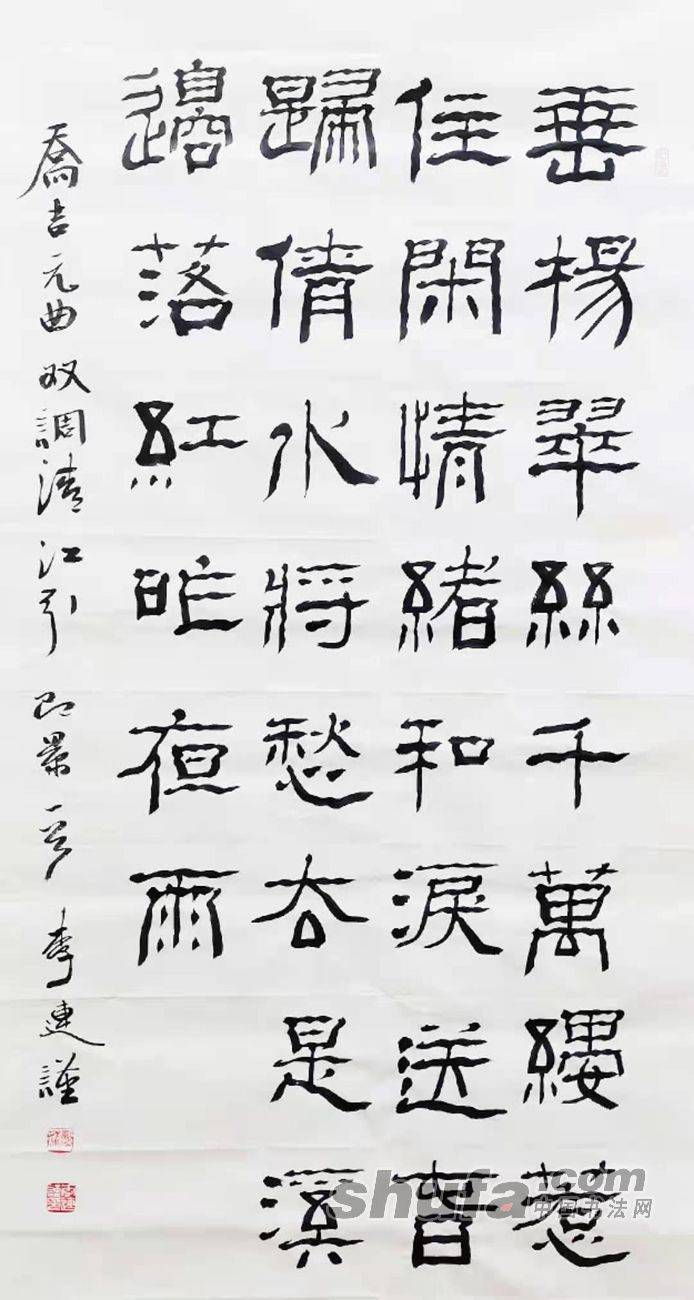 垂楊翠絲千萬縷惹
住閑情緒和淚送春
歸倩水將愁去是溪
邊落紅昨夜雨
喬吉元曲 双調清江引 即景一首 李連謹
shufa.com
中国书法网